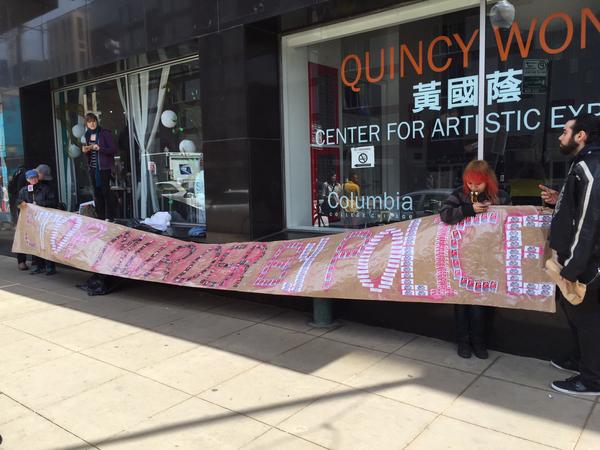 QUINCY WON
黃國蔭
CENTER FOR ARTISTIC EXP
Columbia
COLLEGE CHICAGO
STOP MURDERS BY POLICE